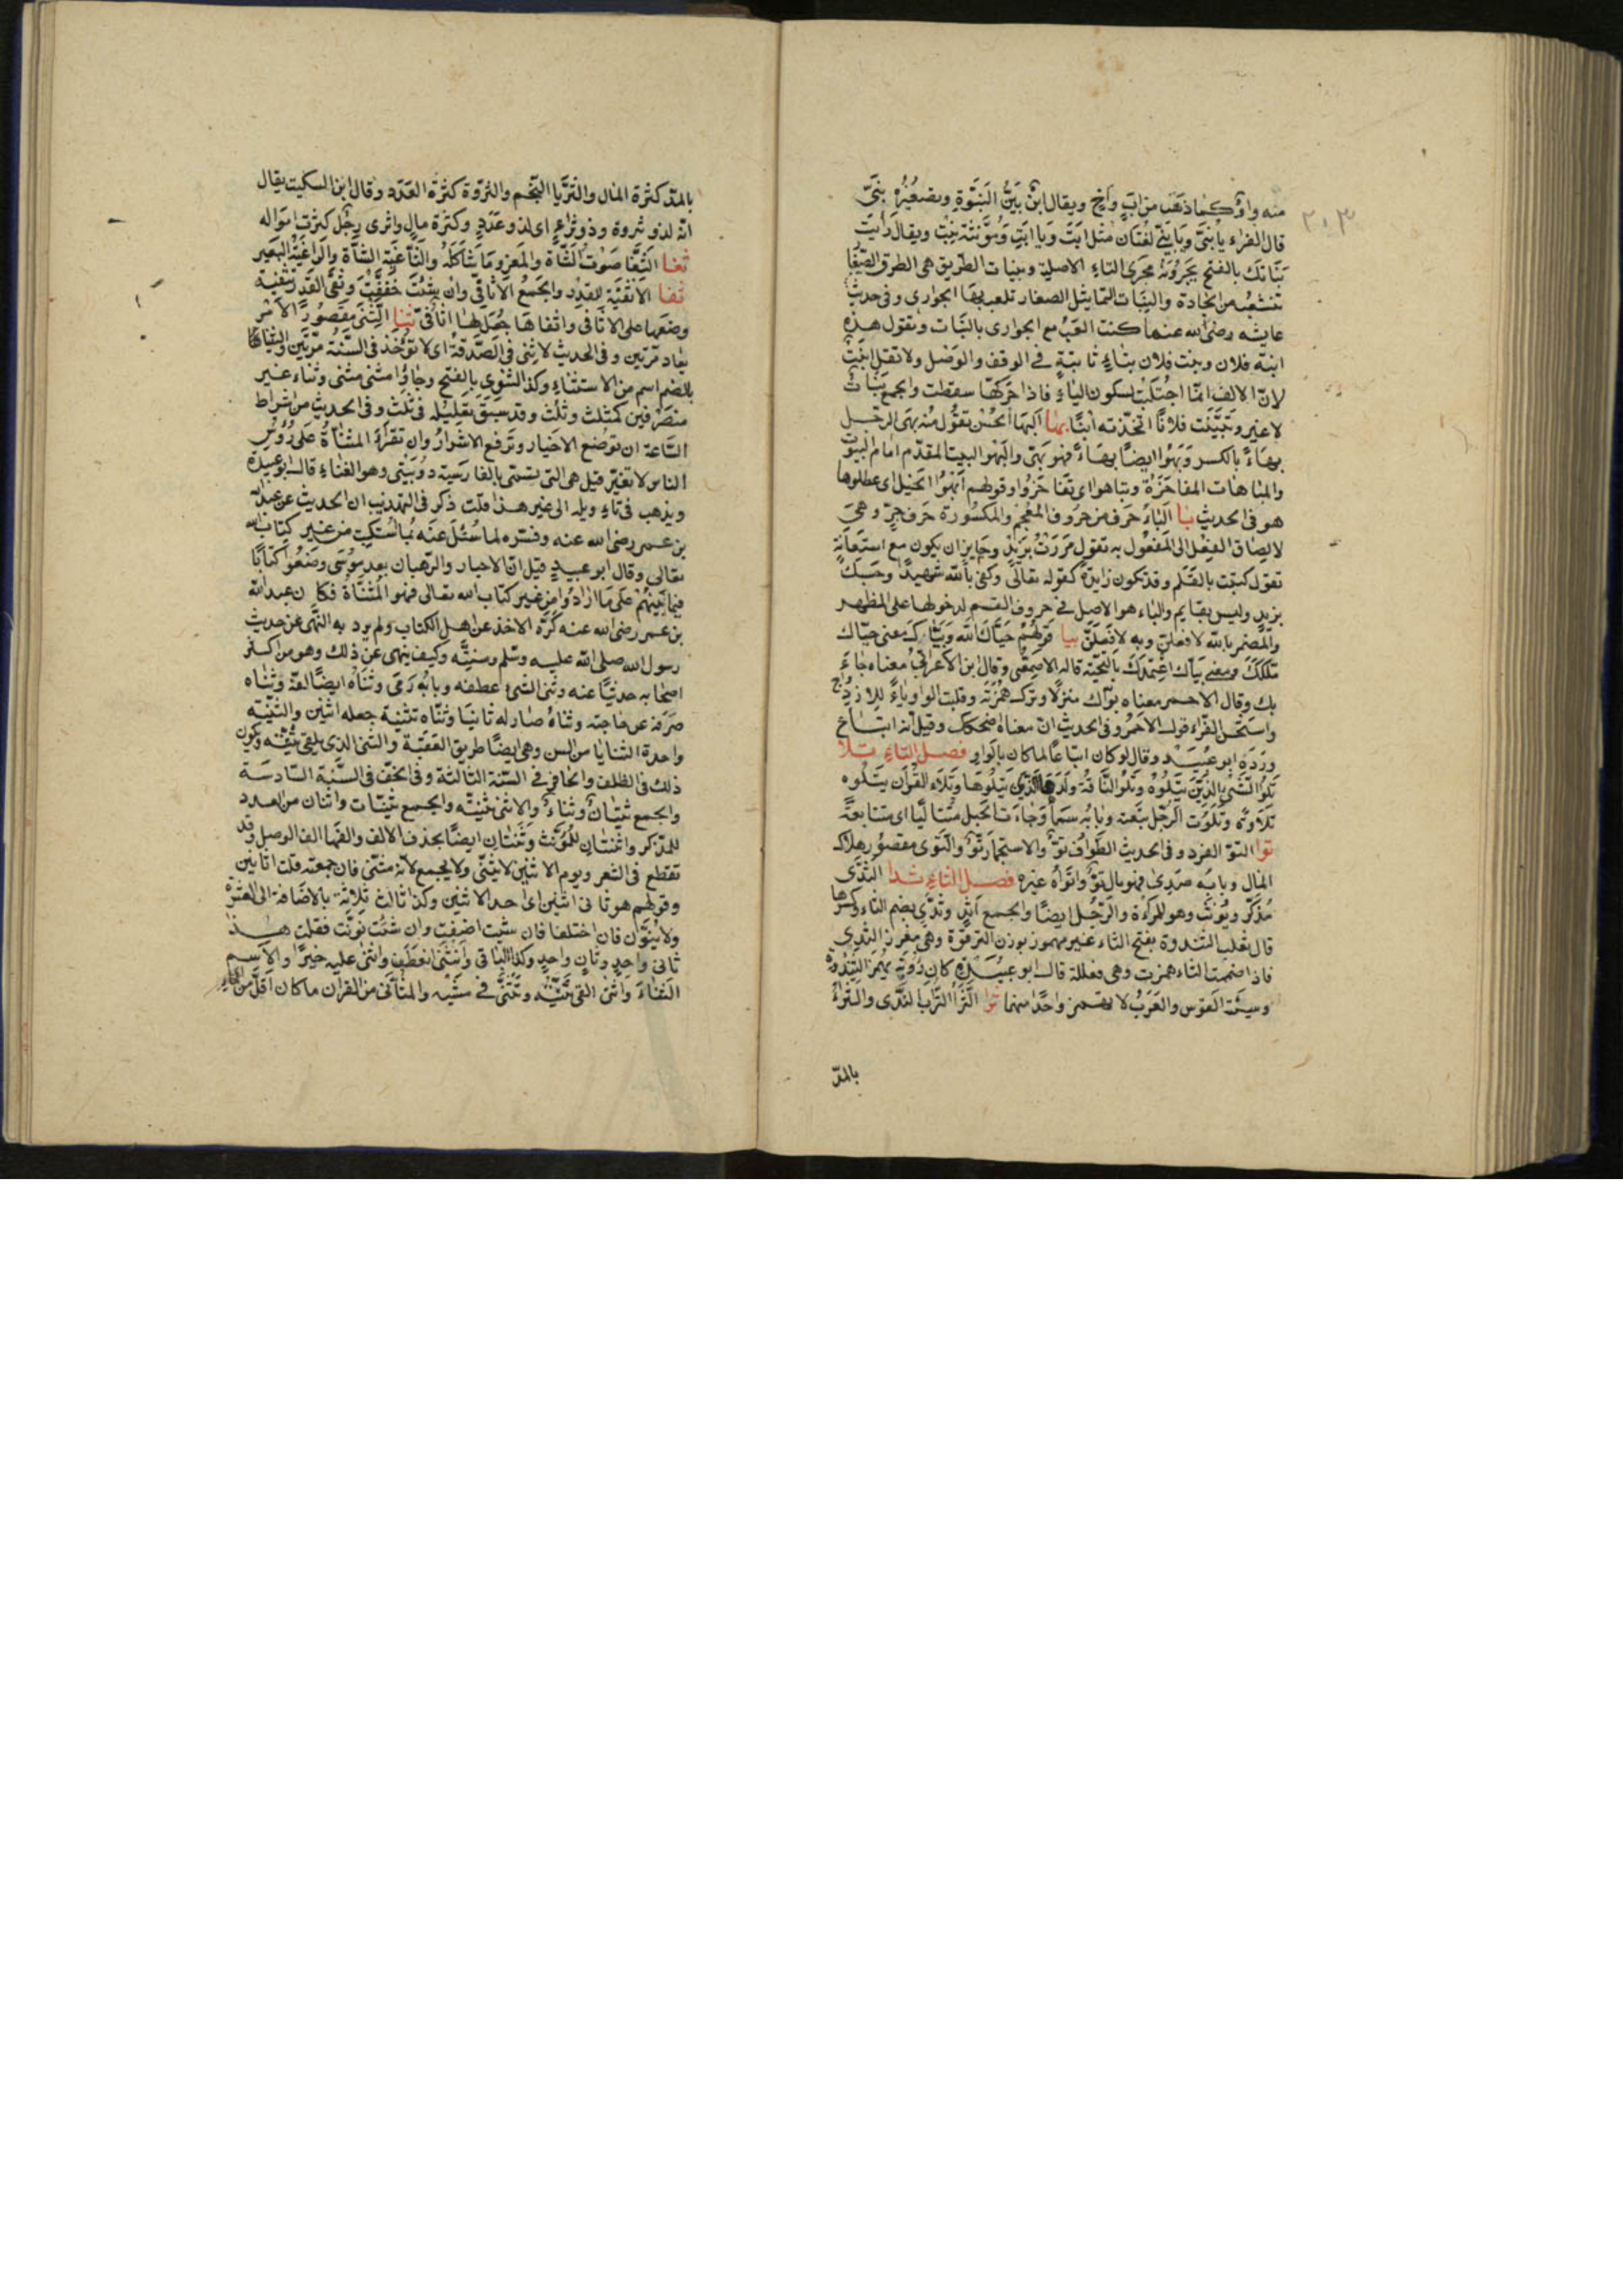 ٢٠٣
منه واو كما ذهب من اب واخ ويقال ابن بين البنوة وتصغيره بنى
قال الفراء يا بنى ويا بنى لغتان مثل يا ابت ويا ابت ومؤنثه بنت ويقال رايت
بناتك بالفتح يجرونه مجرى التاء الاصلية وبنيات الطريق هى الطرق الصغار
تنشعب من الجادة والبنات التماثيل الصغار تلعب بها الجوارى وفى حديث
عايشه رضى الله عنهما كنت العب مع الجوارى بالبنات وتقول هذه
ابنة فلان وبنت فلان بتاء ثابتة فى الوقف والوصل ولا تقل ابنت
لان الالف انما اجتلبت لسكون الباء فاذا حركتها سقطت والجمع بنات
لا غير وتبنيت فلانا اتخذته ابنا بها البهاء الحسن تقول منه بهى الرجل
بهاء بالكسر وبهو ايضا بهاء فهو بهى والبهو البيت المقدم امام البيوت
والمباهات المفاخرة وتباهوا اى تفاخروا وقولهم ابهوا الخيل اى عطلوها
هو فى الحديث با الباء حرف من حروف المعجم والمكسورة حرف جر وهى
لالصاق الفعل الى المفعول به تقول مررت بزيد وجايز ان يكون مع استعانة
تقول كتبت بالقلم وقد تكون زايدة كقوله تعالى وكفى بالله شهيدا وحسبك
بزيد وليس بقايم والباء هو الاصل فى حروف القسم لدخولها على المظهر
والمضمر بالله لافعلن وبه لافعلن بيا قولهم حياك الله وبياك معنى حياك
ملكك ومعنى بياك اعتمدك بالتحية قاله الاصمعى وقال ابن الاعرابى معناه جاء
بك وقال الاحمر معناه بواك منزلا وترك همزته وقلبت الواو ياء للازدواج
واستحسن الفراء قول الاحمر وفى الحديث ان معناه ضحكك وقيل انه اتباع
ورده ابو عبيد وقال لو كان اتباعا لما كان بالواو فصل التاء تلا
تلو الشئ الذى يتلوه وتلو الناقة ولدها الذى يتلوها وتلاء القران يتلوه
تلاوة وتلوت الرجل تبعته وبابه سما وجاءت الخيل متتاليا اى متتابعة
توا التو الفرد وفى الحديث الطواف تو والاستجمار تو والتوى مقصور هلاك
المال وبابه صدى فهو مال تو واتواه غيره فصل الثاء ثدا الثدى
مذكر ويؤنث وهو للمراة والرجل ايضا والجمع اثد وثدى بضم الثاء وكسرها
قال ثعلب الثندوة بفتح الثاء غير مهموز بوزن الترقوة وهى مغرز الثدى
فاذا ضممت الثاء همزت وهى فعللة قال ابو عبيدة كان رؤبة يهمز الثندوة
وسية القوس والعرب لا تهمز واحدا منهما ثرا الثرا التراب الندى والثراء
بالمد
بالمد كثرة المال والثريا النجم والثروة كثرة العدد وقال ابن السكيت يقال
انه لذو ثروة وذو ثراء اى لذو عدد وكثرة مال واثرى رجل كثرت امواله
ثغا الثغا صوت الشاة والمعز وما شاكله والثاغية الشاة والراغية البعير
ثفا الاثفية للقدر والجمع الاثافى وان شئت خففت وثفى القدر تثفية
وضعها على الاثافى واثفاها جعل لها اثافى ثنا الثنى مقصور الامر
يعاد مرتين وفى الحديث لا ثنى فى الصدقة اى لا تؤخذ فى السنة مرتين والثنيا
بالضم اسم من الاستثناء وكذا الثنوى بالفتح وجاوا مثنى مثنى وثناء غير
منصرفين كمثلث وثلث وقد سبق تعليله فى ثلث وفى الحديث من اشراط
الساعة ان توضع الاخيار وترفع الاشرار وان تقرا المثناة على رؤس
الناس لا تغير قيل هى التى تسمى بالفارسية دوبيتى وهو الغناء قال ابو عبيدة
ويذهب فى تاويله الى غير هذا قلت ذكر فى التهذيب ان الحديث عن عبد الله
بن عمر رضى الله عنه وفسره لما سئل عنه بما استكتب من غير كتاب الله
تعالى وقال ابو عبيد قيل ان الاحبار والرهبان بعد موسى وضعوا كتابا
فيما بينهم على ما ارادوا من غير كتاب الله تعالى فهو المثناة فكان عبد الله
بن عمر رضى الله عنه كره الاخذ عن اهل الكتاب ولم يرد به النهى عن حديث
رسول الله صلى الله عليه وسلم وسنته وكيف ينهى عن ذلك وهو من اكثر
اصحابه حديثا عنه وثنى الشئ عطفه وبابه رمى وثناه ايضا لفه وثناه
صرفه عن حاجته وثناه صار له ثانيا وثناه تثنية جعله اثنين والثنية
واحدة الثنايا من السن وهى ايضا طريق العقبة والثنى الذى يلقى ثنيته ويكون
ذلك فى الظلف والحافر فى السنة الثالثة وفى الخف فى السنة السادسة
والجمع ثنيان وثناء والانثى ثنية والجمع ثنيات واثنان من العدد
للمذكر واثنتان للمؤنث وثنتان ايضا بحذف الالف والفها الف الوصل وقد
تقطع فى الشعر ويوم الاثنين لا يثنى ولا يجمع لانه مثنى فان جمعته قلت اثانين
وقولهم هو ثانى اثنين اى احد الاثنين وكذا ثالث ثلاثة بالاضافة الى العشرة
ولا ينون فان اختلفا فان شئت اضفت وان شئت نونت فقلت هذا
ثانى واحد وثان واحد وكذا الباقى وانثنى انعطف واثنى عليه خيرا والاسم
الثناء واثنى القى ثنيته وتثنى فى مشيه والمثانى من القران ما كان اقل من